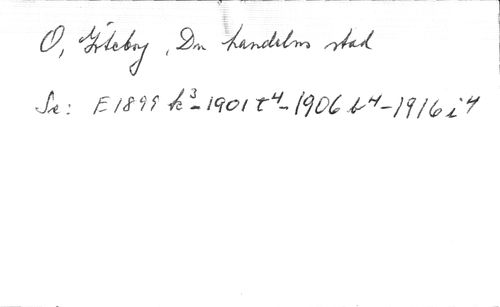 O, Göteborg, Du handelns stad
Se: E 1899 k³ - 1901 t⁴ - 1906 b⁴ - 1916 i⁴